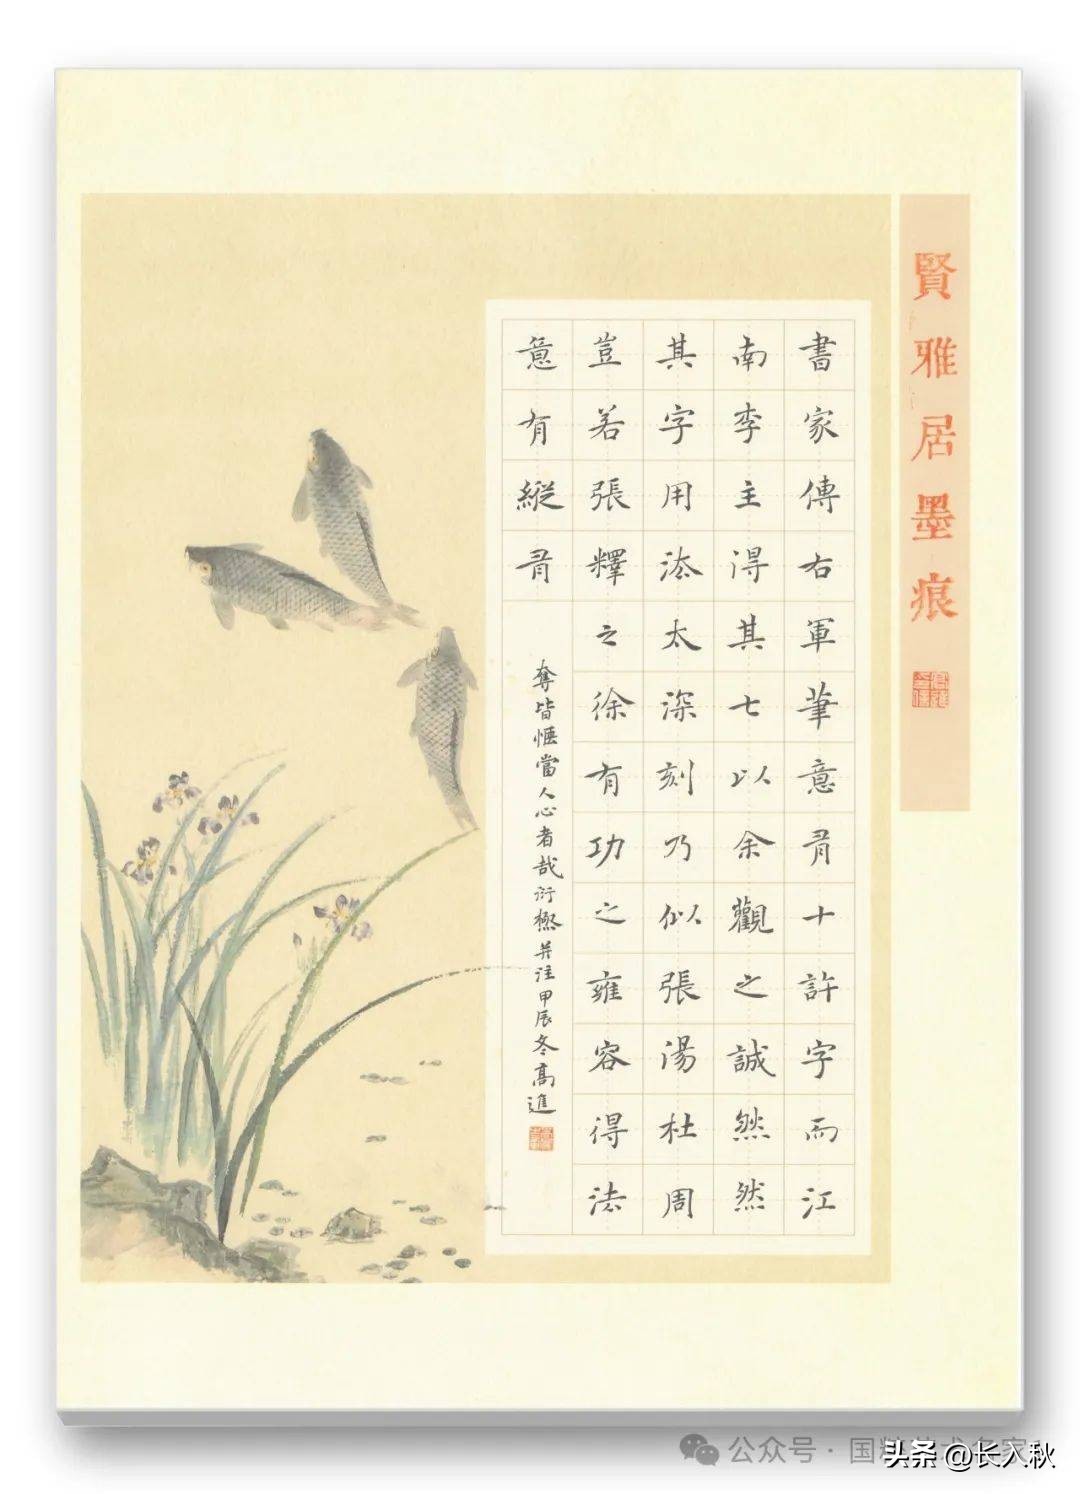 賢雅居墨痕
書家傳右軍筆意有十許字而江
南李主得其七以余觀之誠然然
其字用法太深刻乃似張湯杜周
豈若張釋之徐有功之雍容得法
意有縱有
奪皆愜當人心者哉衍極并注甲辰冬高進
公众号 · 国
头条 @长入秋